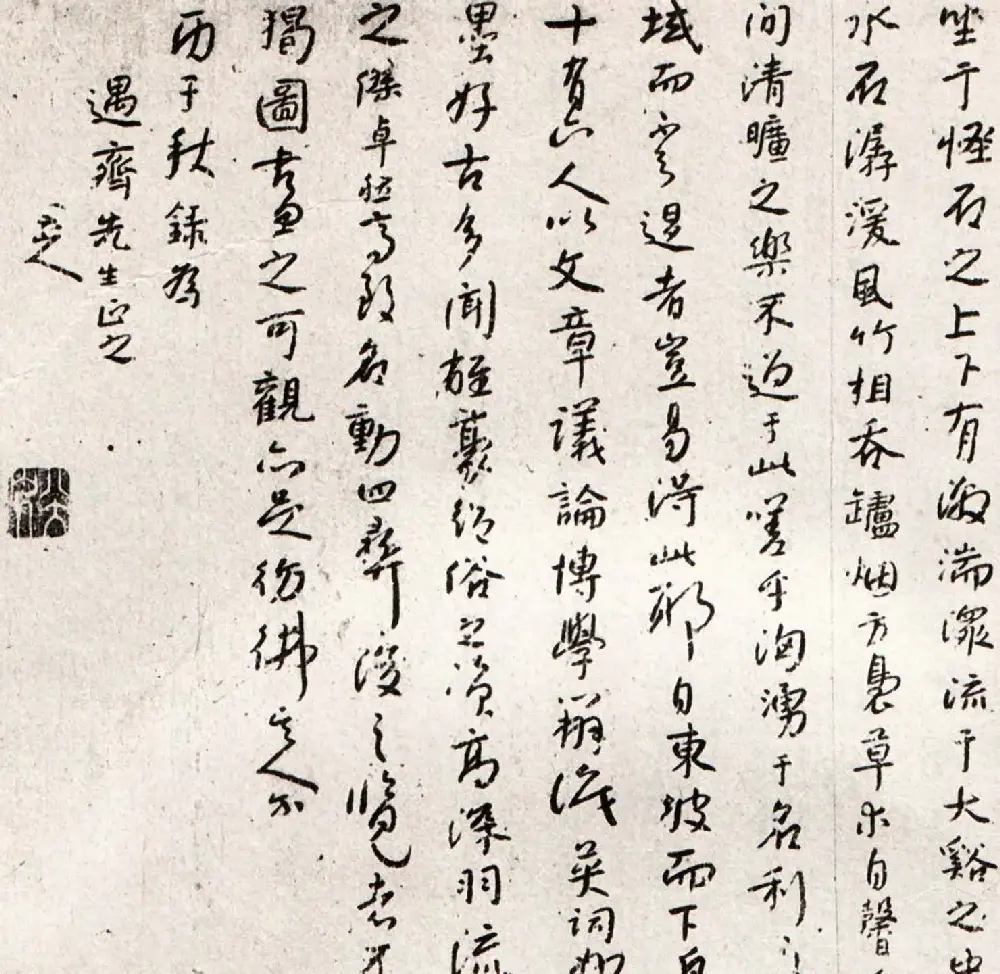 坐于怪石之上下有激湍潀流于大谿之中
水石潺湲風竹相吞罏烟方裊草木自馨
间清曠之樂不過于此嗟乎洶湧于名利之
域而不退者豈易得此耶自東坡而下
十有六人以文章議論博學辨識英詞妙
墨好古多聞雄豪絕俗之資高深羽流
之傑卓然高致名動四彝後之覽者不
獨圖畫之可觀亦足彷彿其人尔
丙子秋録為
遇齊先生正之
八大山人